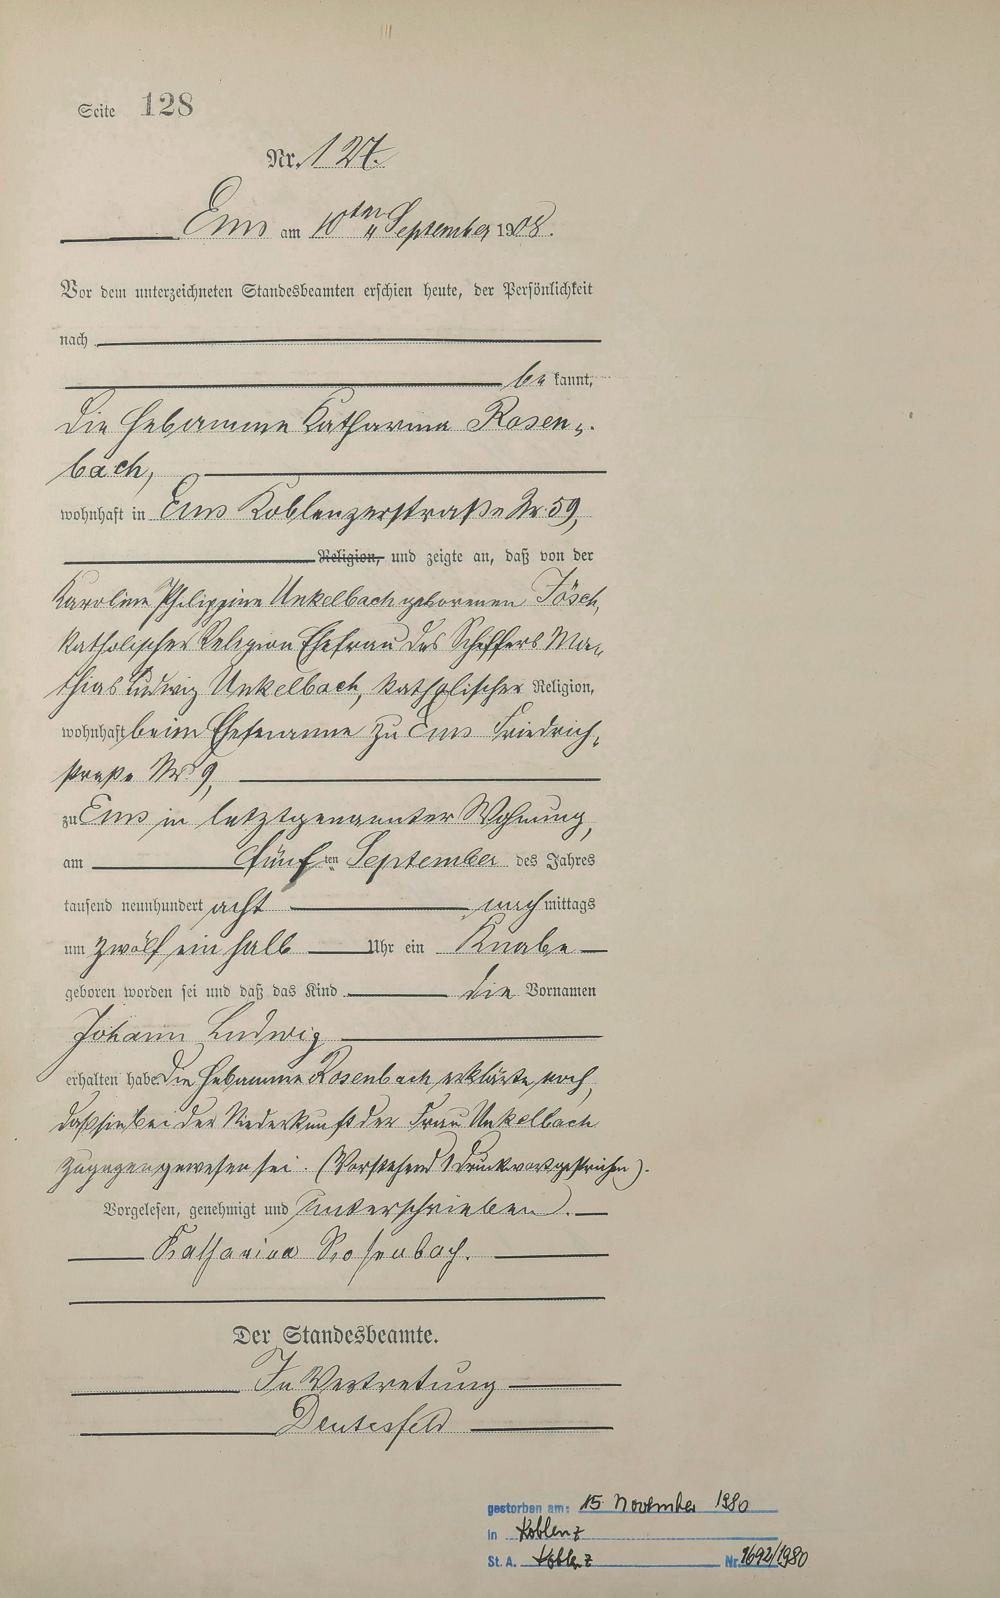 Seite 128
Nr. 127.
Ems am 10ten September 1908.
Vor dem unterzeichneten Standesbeamten erschien heute, der Persönlichkeit
nach
be kannt,
die Hebamme Katharina Rosen-
bach,
wohnhaft in Ems Koblenzerstraße Nr. 59,
Religion, und zeigte an, daß von der
Karoline Philippine Unkelbach geborenen Jösch,
katholischer Religion Ehefrau des Schiffers Ma-
thias Ludwig Unkelbach, katholischer Religion,
wohnhaft beim Ehemanne zu Ems Friedrich-
straße Nr. 9,
zu Ems in letztgenannter Wohnung,
am fünften September des Jahres
tausend neunhundert acht nachmittags
um zwölf ein halb Uhr ein Knabe
geboren worden sei und daß das Kind die Vornamen
Johann Ludwig
erhalten habe. Die Hebamme Rosenbach erklärte noch,
daß sie bei der Niederkunft der Frau Unkelbach
zugegen gewesen sei. (Vorstehend 1 Druckwort gestrichen).
Vorgelesen, genehmigt und unterschrieben.
Katharina Rosenbach.
Der Standesbeamte.
In Vertretung
gestorben am: 15. November 1980
in Koblenz
St. A. Koblenz Nr. 1692/1980